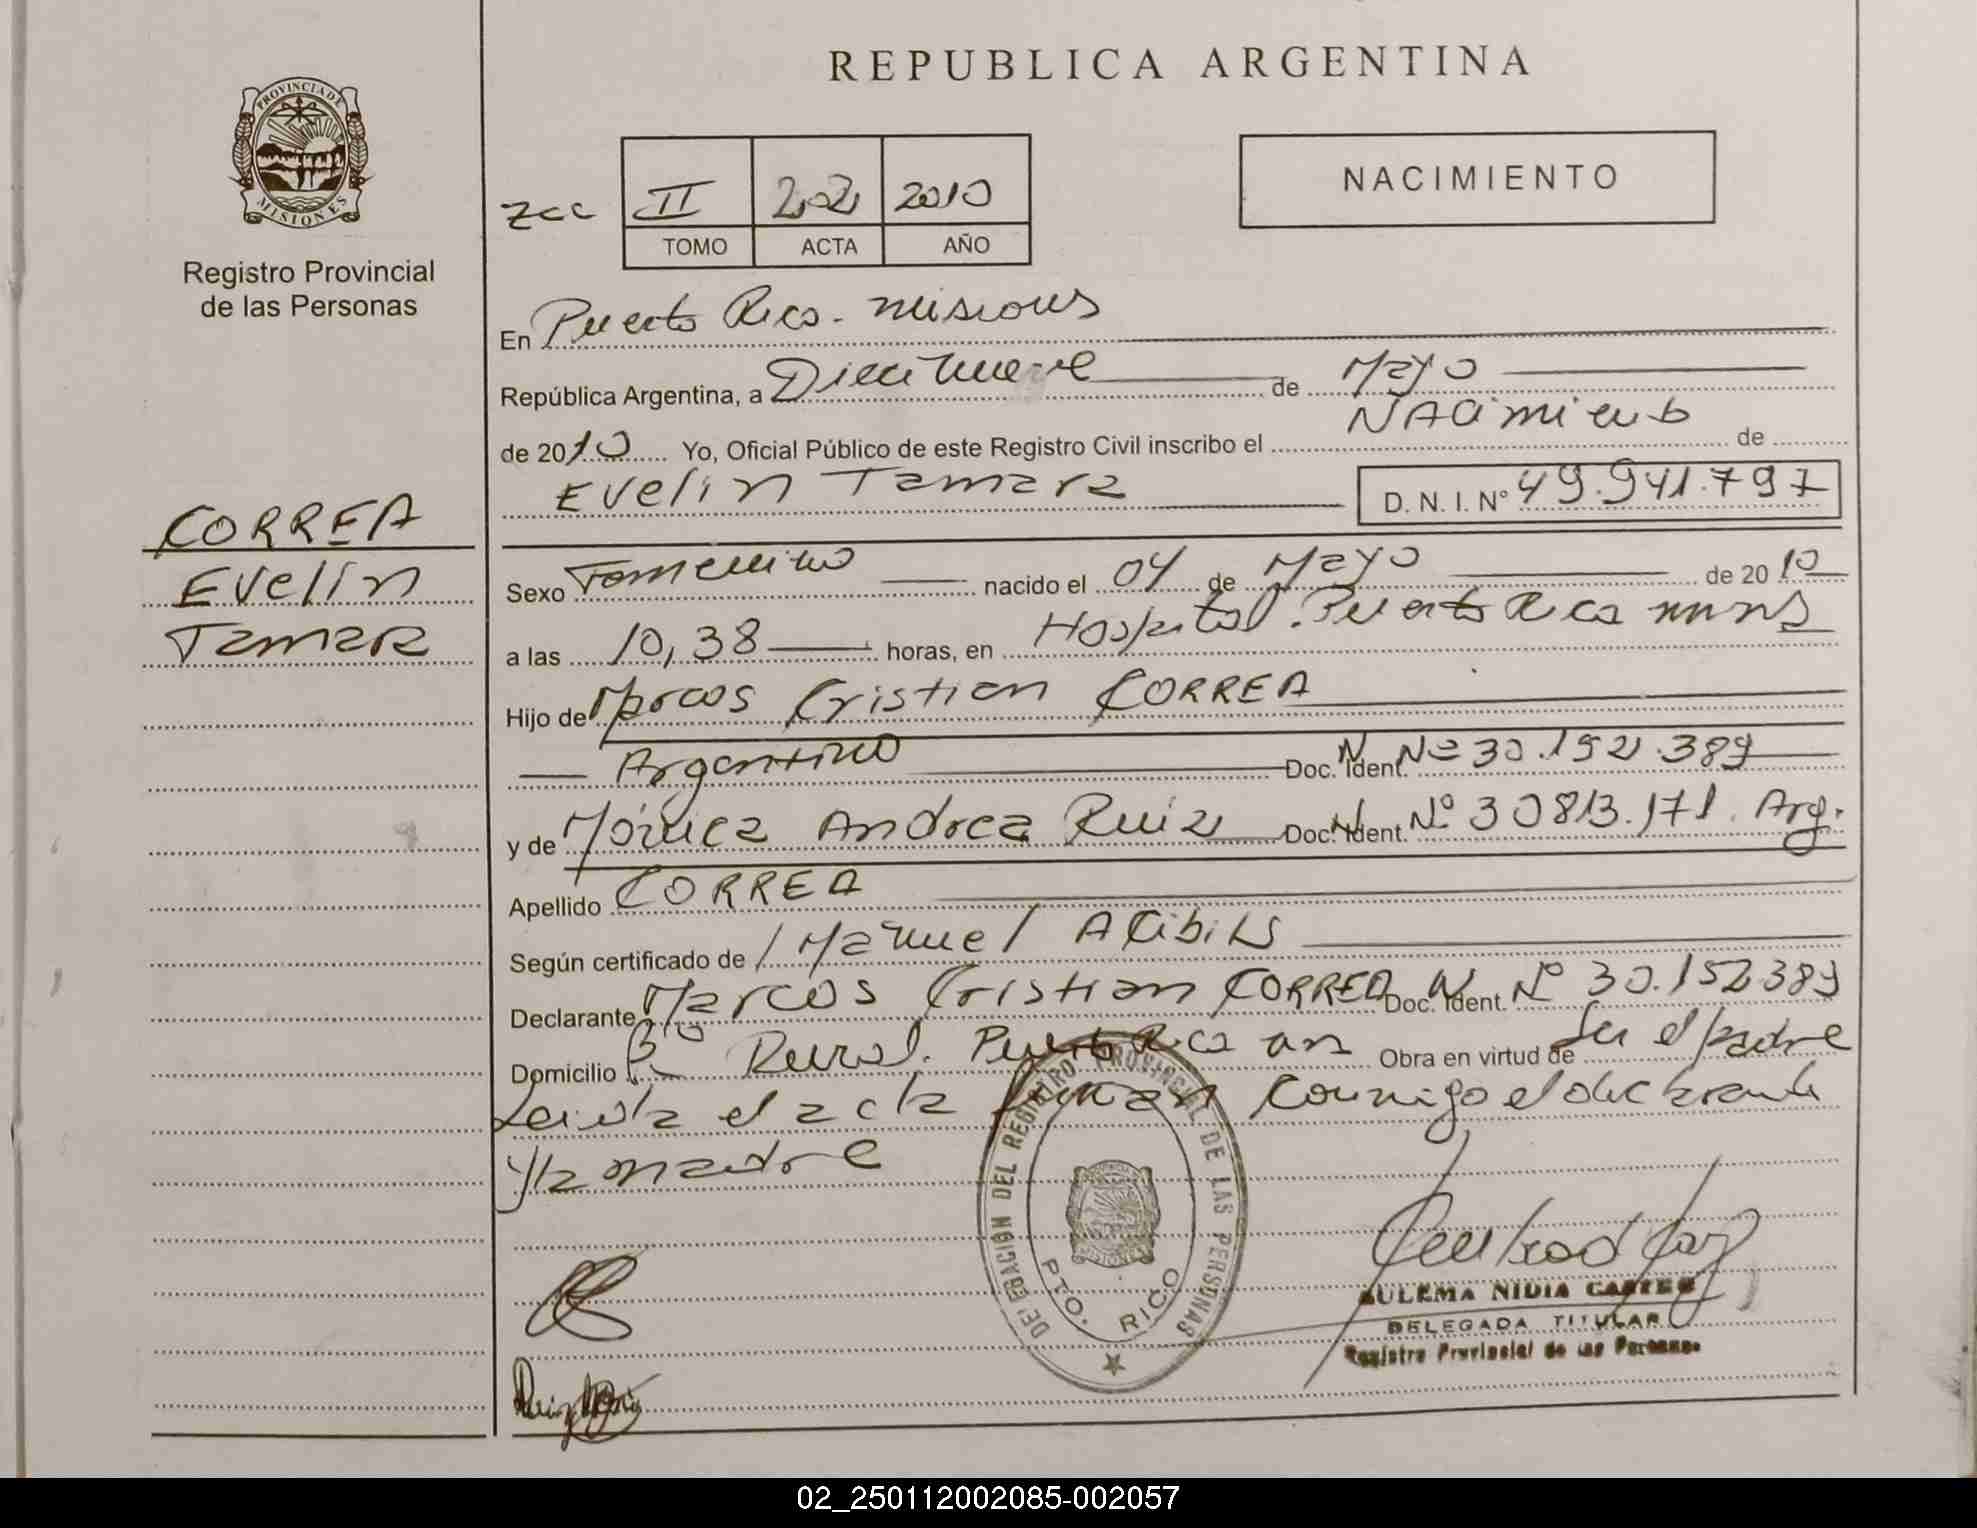 REPUBLICA ARGENTINA
PROVINCIA DE
MISIONES
Registro Provincial
de las Personas
NACIMIENTO
II 202 2010
TOMO ACTA AÑO
En Puerto Rico - Misiones
República Argentina, a Diecinueve de Mayo
de 2010 Yo, Oficial Público de este Registro Civil inscribo el NACimiento de
Evelin Tamara D. N. I. Nº 49.941.797
CORREA
Evelin
Tamara
Sexo Femenino nacido el 04 de Mayo de 2010
a las 10,38 horas, en Hospital. Puerto Rico
Hijo de Marcos Cristian CORREA
Argentino Doc. Ident. Nº 30.152.389
y de Mónica Andrea Ruiz Doc. Ident. Nº 30813.171. Arg.
Apellido CORREA
Según certificado de Manuel
Declarante Marcos Cristian CORREA Doc. Ident. Nº 30.152389
Domicilio Bº Rural. Puerto Rico Obra en virtud de Ser el padre
Leida el acta firman conmigo el declarante
y la madre
DELEGACION DEL REGISTRO PROVINCIAL DE LAS PERSONAS
PTO. RICO
ZULEMA NIDIA
DELEGADA TITULAR
Registro Provincial de las Personas
02_250112002085-002057